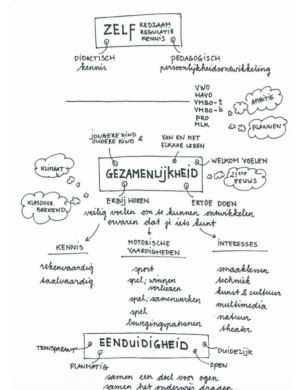 ZELF REDZAAM
REGULATIE
KENNIS
DIDACTISCH
kennis
PEDAGOGISCH
persoonlijkheidsontwikkeling
VWO
HAVO
VMBO-t
VMBO-b
PRO
MLK
AMBITIE
PLANNEN
JONGERE KIND &
OUDERE KIND
VAN EN MET
ELKAAR LEREN
KLIMAAT
WELKOM VOELEN
GEZAMENLIJKHEID
21STE
EEUWS
KLASDOOR
BREKEND
ERBIJ HOREN
ERTOE DOEN
veilig voelen om te kunnen ontwikkelen
ervaren dat je iets kunt
KENNIS
MOTORISCHE
VAARDIGHEDEN
INTERESSES
rekenvaardig
taalvaardig
sport
spel; winnen
verliezen
spel; samenwerken
spel
bewegingspatronen
smaaklessen
techniek
kunst & cultuur
multimedia
natuur
theater
EENDUIDIGHEID
TRANSPARANT
DUIDELIJK
PLANMATIG
OPEN
samen een doel voor ogen
samen het onderwijs dragen